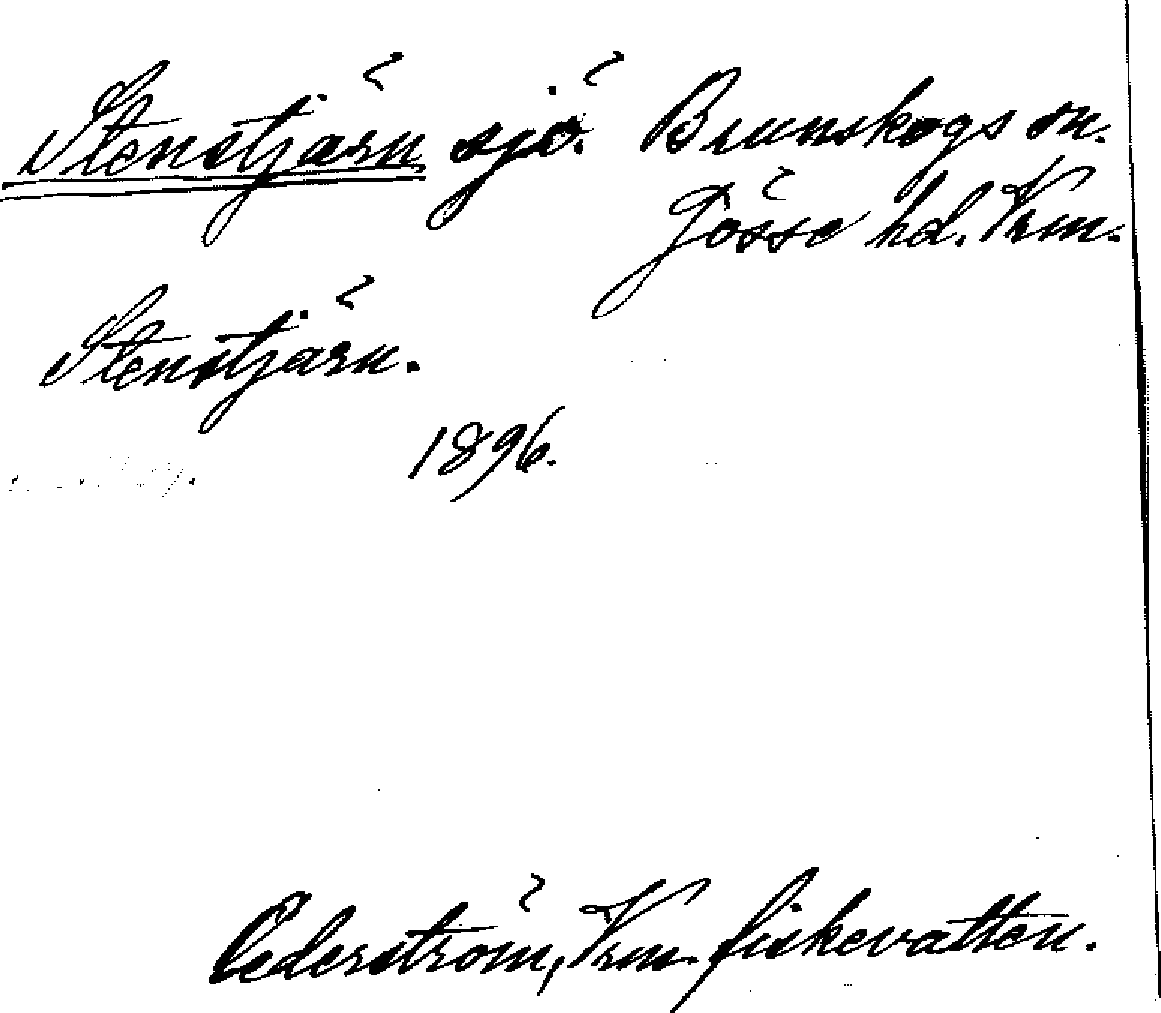 Stenstjärn sjö. Brunskogs sn.
Gösse hd. Vrm.
Stenstjärn.
1896.
Cederström, Vrm. fiskevatten.